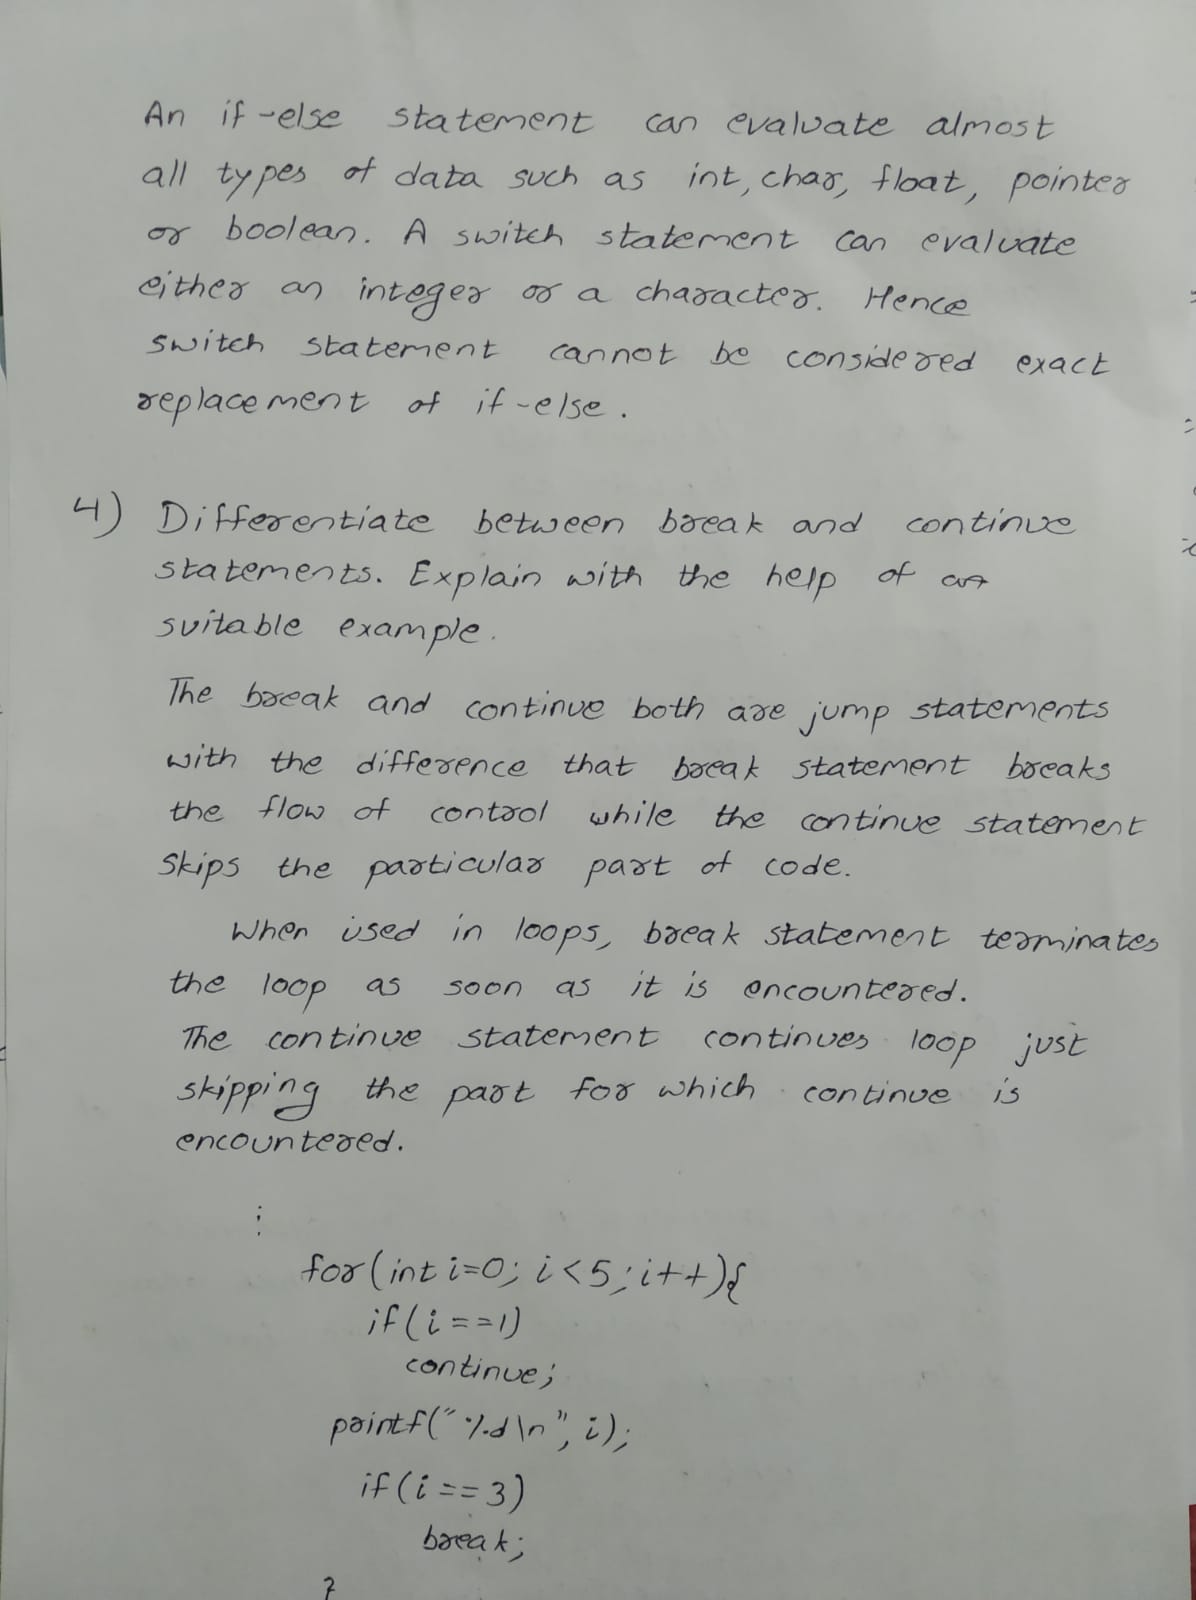 An if-else statement can evaluate almost
all types of data such as int, char, float, pointer
or boolean. A switch statement can evaluate
either an integer or a character. Hence
switch statement cannot be considered exact
replacement of if-else.
4) Differentiate between break and continue
statements. Explain with the help of
suitable example.
The break and continue both are jump statements
with the difference that break statement breaks
the flow of control while the continue statement
skips the particular part of code.
When used in loops, break statement terminates
the loop as soon as it is encountered.
The continue statement continues loop just
skipping the part for which continue is
encountered.
⋮
for(int i=0; i<5; i++){
if(i==1)
continue;
printf("%d\n", i);
if(i==3)
break;
}